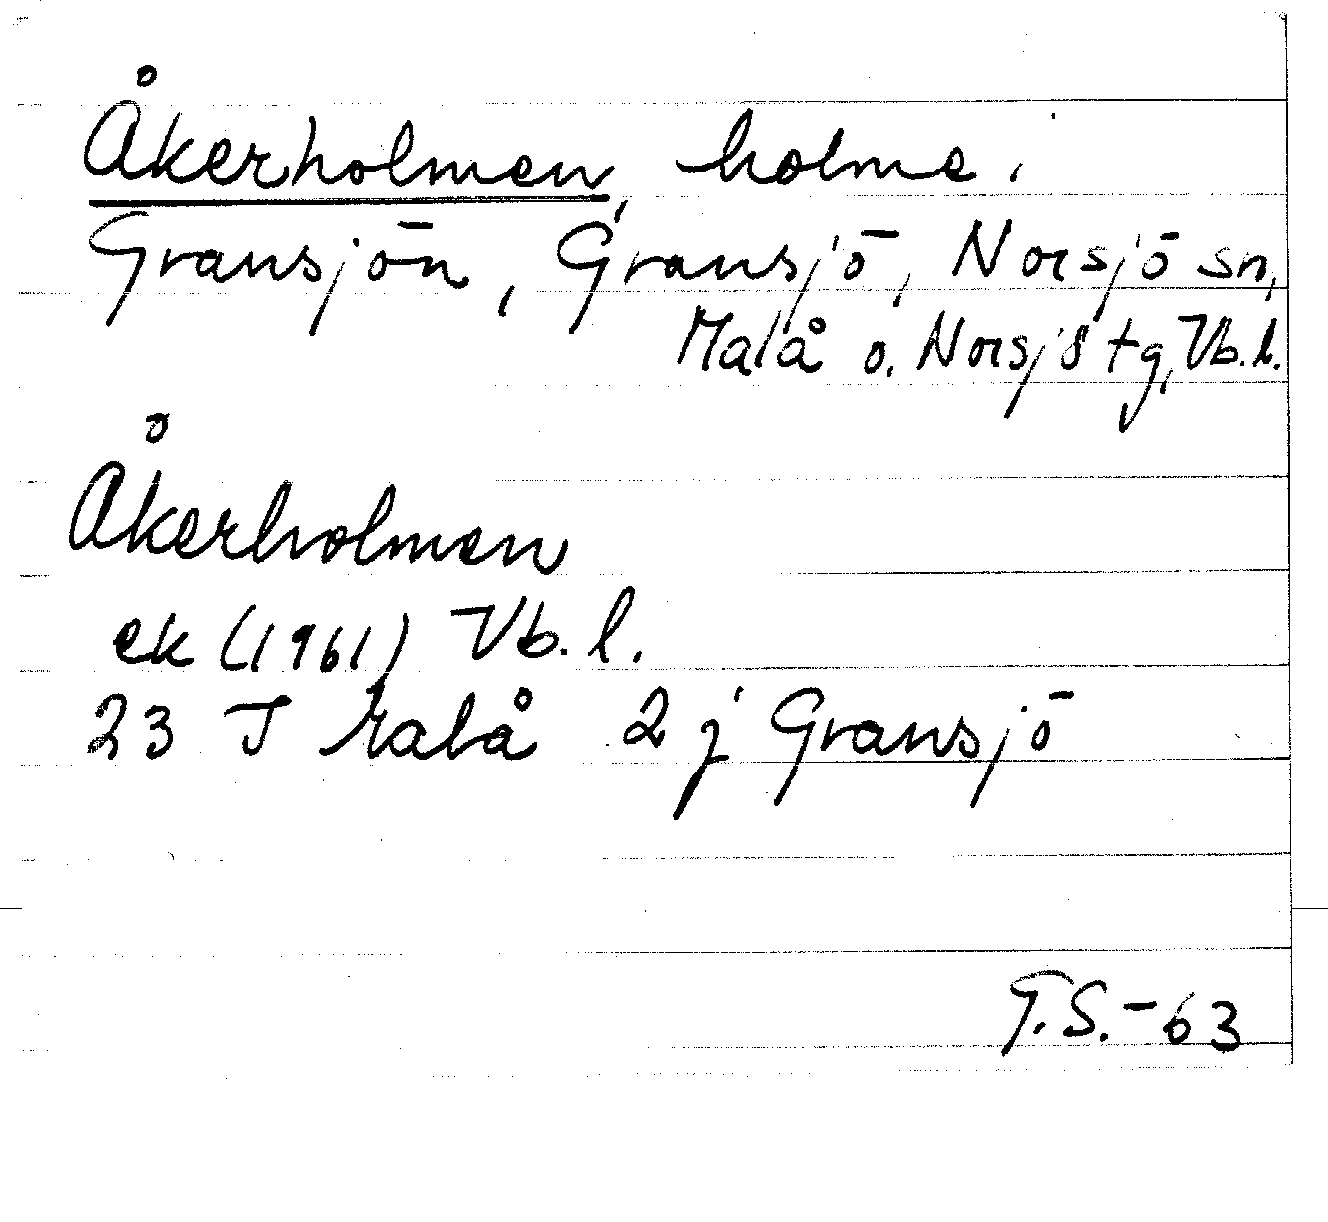 Åkerholmen, holme i
Gransjön, Gransjö, Norsjö sn,
Malå o. Norsjö tg, Vb.l.
Åkerholmen
ek (1961) Vb. l.
23 J Malå 2 j Gransjö
G.S.-63